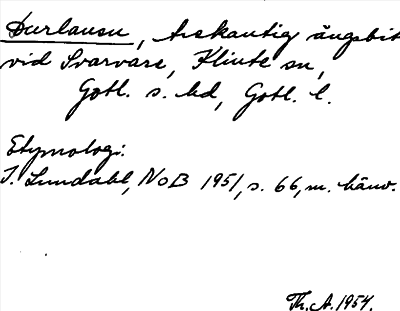 Durlausu, treskantig ängsbit
vid Svarvare, Klinte sn,
Gotl. s. hd, Gotl. l.
Etymologi:
I. Lundahl, NoB 1951, s. 66, m. hänv.
Th. A. 1954.